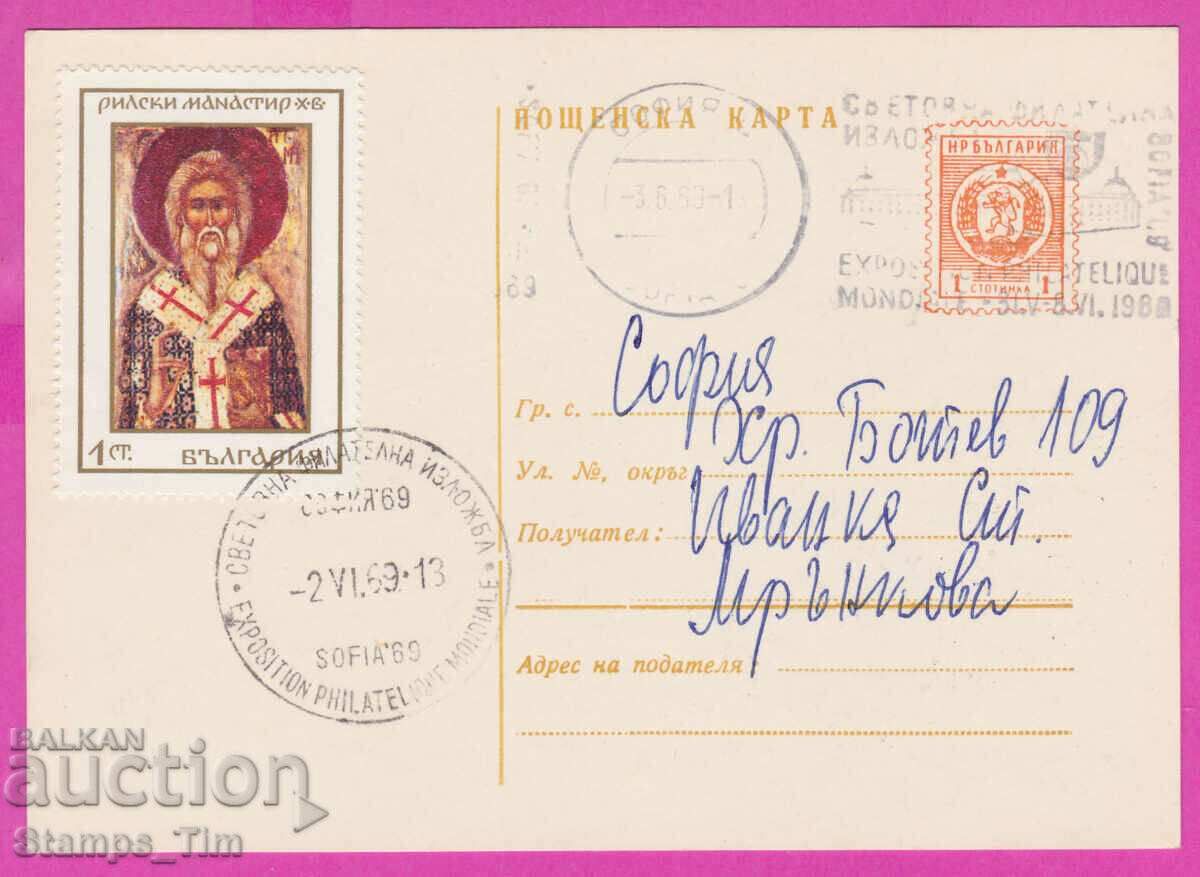 РИЛСКИ МАНАСТИР X·В·
1 СТ. БЪЛГАРИЯ
ПОЩЕНСКА КАРТА
СОФИЯ
-3.6.69-1
СВЕТОВНА ФИЛАТЕЛНА
EXPOSITION PHILATELIQUE
MONDIALE · 31.V-8.VI.1969
69
НР БЪЛГАРИЯ
1 СТОТИНКА 1
Гр. с. София
Хр. Ботев 109
Ул. №, окръг
Получател: Иванка Ст.
Мрънкова
Адрес на подателя:
СВЕТОВНА ФИЛАТЕЛНА ИЗЛОЖБА
СОФИЯ'69
-2 VI.69·13
SOFIA'69
EXPOSITION PHILATELIQUE MONDIALE
BALKAN
auction
Stamps_Tim